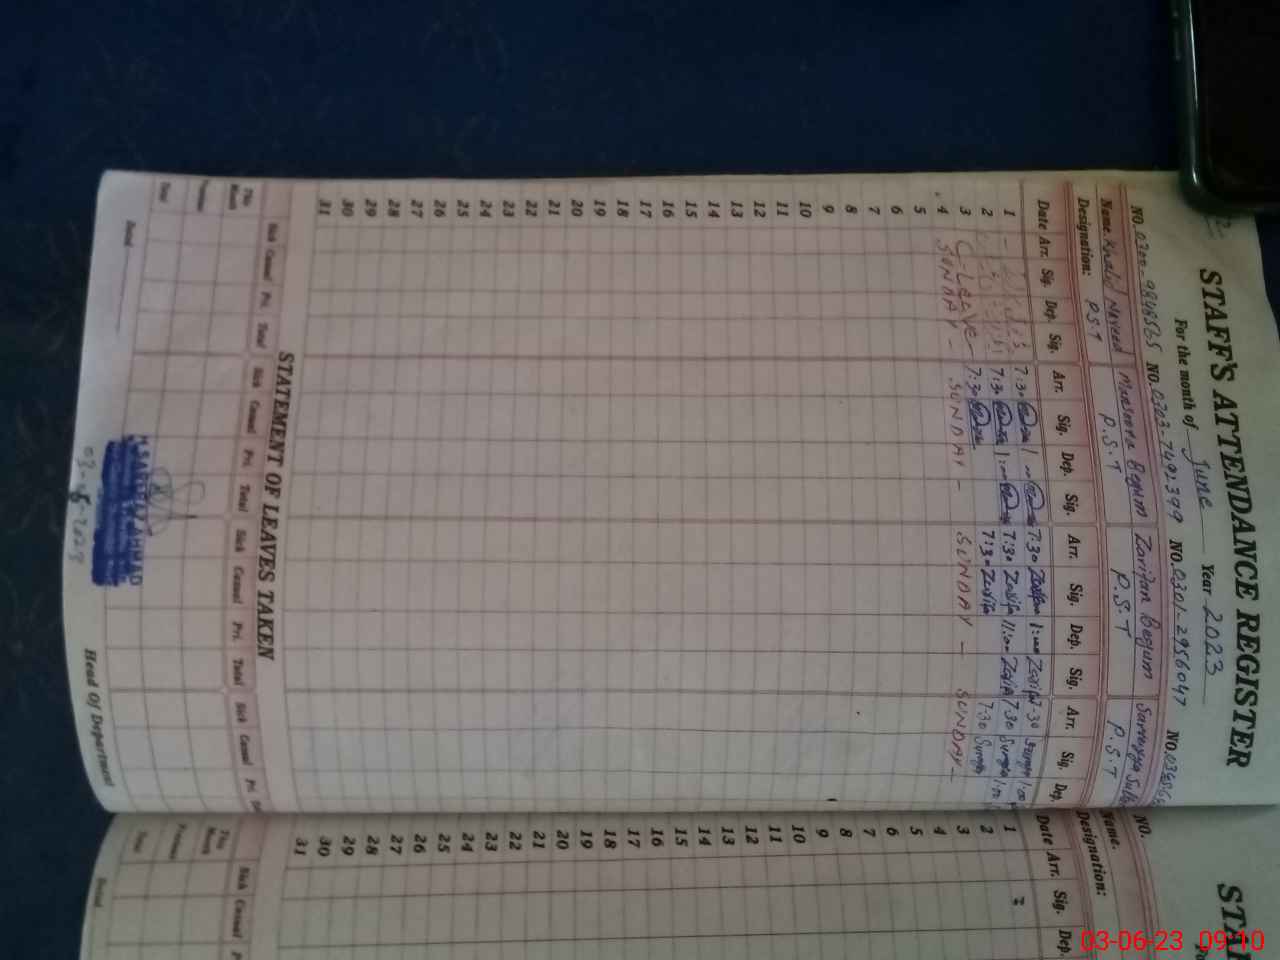 STAFF'S ATTENDANCE REGISTER
For the month of June Year 2023
NO. 0300-9848565 NO. 0303-7492399 NO. 0301-2956047 NO.
Name. Khalid Naveed Mansoora Begum Zarifan Begum
Designation: P.S.T P.S.T P.S.T P.S.T
Date Arr. Sig. Dep. Sig. Arr. Sig. Dep. Sig. Arr. Sig. Dep. Sig. Arr. Sig. Dep.
1 7:30 7:30 1:00 7:30 1:00
2 7:30 7:30 11:00 7:30
3 C-Leave 7:30 7:30 7:30
4 SUNDAY - SUNDAY - SUNDAY - SUNDAY -
5
6
7
8
9
10
11
12
13
14
15
16
17
18
19
20
21
22
23
24
25
26
27
28
29
30
31
STATEMENT OF LEAVES TAKEN
Sick Casual Pri. Total Sick Casual Pri. Total Sick Casual Pri. Total Sick Casual Pri.
This Month
Previous
Total
SARFRAZ AHMAD
Head Of Department
NO.
Name.
Designation:
Date Arr. Sig. Dep.
1
2
3
4
5
6
7
8
9
10
11
12
13
14
15
16
17
18
19
20
21
22
23
24
25
26
27
28
29
30
31
Sick Casual
This Month
Previous
Total
03-06-23 09:10